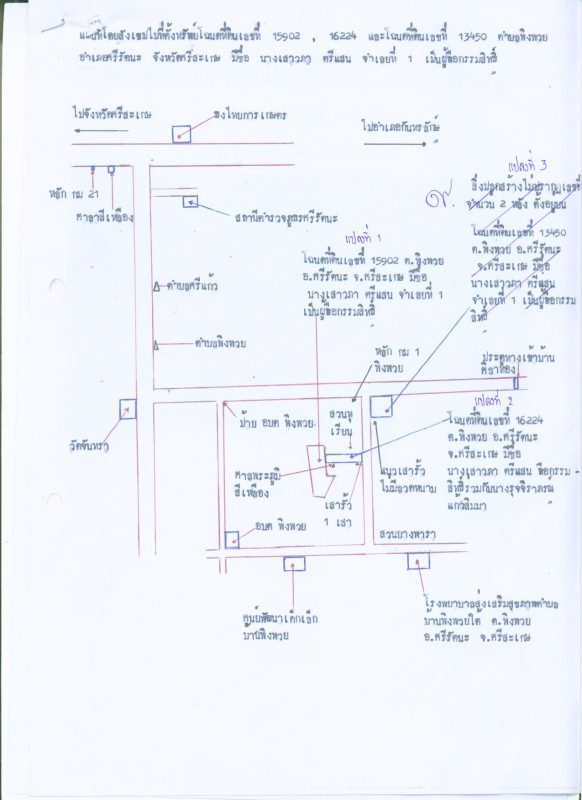 แผนที่โดยสังเขปไปที่ตั้งทรัพย์โฉนดที่ดินเลขที่ 15902 , 16224 และโฉนดที่ดินเลขที่ 13450 ตำบลพิงพวย
อำเภอศรีรัตนะ จังหวัดศรีสะเกษ มีชื่อ นางเสาวภา ศรีแสน จำเลยที่ 1 เป็นผู้ถือกรรมสิทธิ์
ไปจังหวัดศรีสะเกษ
ธงไทยการเกษตร
ไปอำเภอกันทรลักษ์
หลัก กม 21
ศาลาสีเหลือง
สถานีตำรวจภูธรศรีรัตนะ
แปลงที่ 3
สิ่งปลูกสร้างไม่ปรากฏเลขที่
จำนวน 2 หลัง ตั้งอยู่บน
โฉนดที่ดินเลขที่ 13450
ต.พิงพวย อ.ศรีรัตนะ
จ.ศรีสะเกษ มีชื่อ
นางเสาวภา ศรีแสน
จำเลยที่ 1 เป็นผู้ถือกรรม
สิทธิ์
แปลงที่ 1
โฉนดที่ดินเลขที่ 15902 ต.พิงพวย
อ.ศรีรัตนะ จ.ศรีสะเกษ มีชื่อ
นางเสาวภา ศรีแสน จำเลยที่ 1
เป็นผู้ถือกรรมสิทธิ์
ตำบลศรีแก้ว
ตำบลพิงพวย
หลัก กม 1
พิงพวย
ประตูทางเข้าบ้าน
ศิลาทอง
วัดจันทรา
ป้าย อบต พิงพวย
สวนทุ
เรียน
แปลงที่ 2
โฉนดที่ดินเลขที่ 16224
ต.พิงพวย อ.ศรีรัตนะ
จ.ศรีสะเกษ มีชื่อ
นางเสาวภา ศรีแสน ถือกรรม -
สิทธิ์รวมกับนางรุจิราภรณ์
แก้วสิมมา
ศาลพระภูมิ
สีเหลือง
เสารั้ว
1 เสา
แนวเสารั้ว
ไม่มีลวดหนาม
อบต พิงพวย
สวนยางพารา
ศูนย์พัฒนาเด็กเล็ก
บ้านพิงพวย
โรงพยาบาลส่งเสริมสุขภาพตำบล
บ้านพิงพวยใต้ ต.พิงพวย
อ.ศรีรัตนะ จ.ศรีสะเกษ